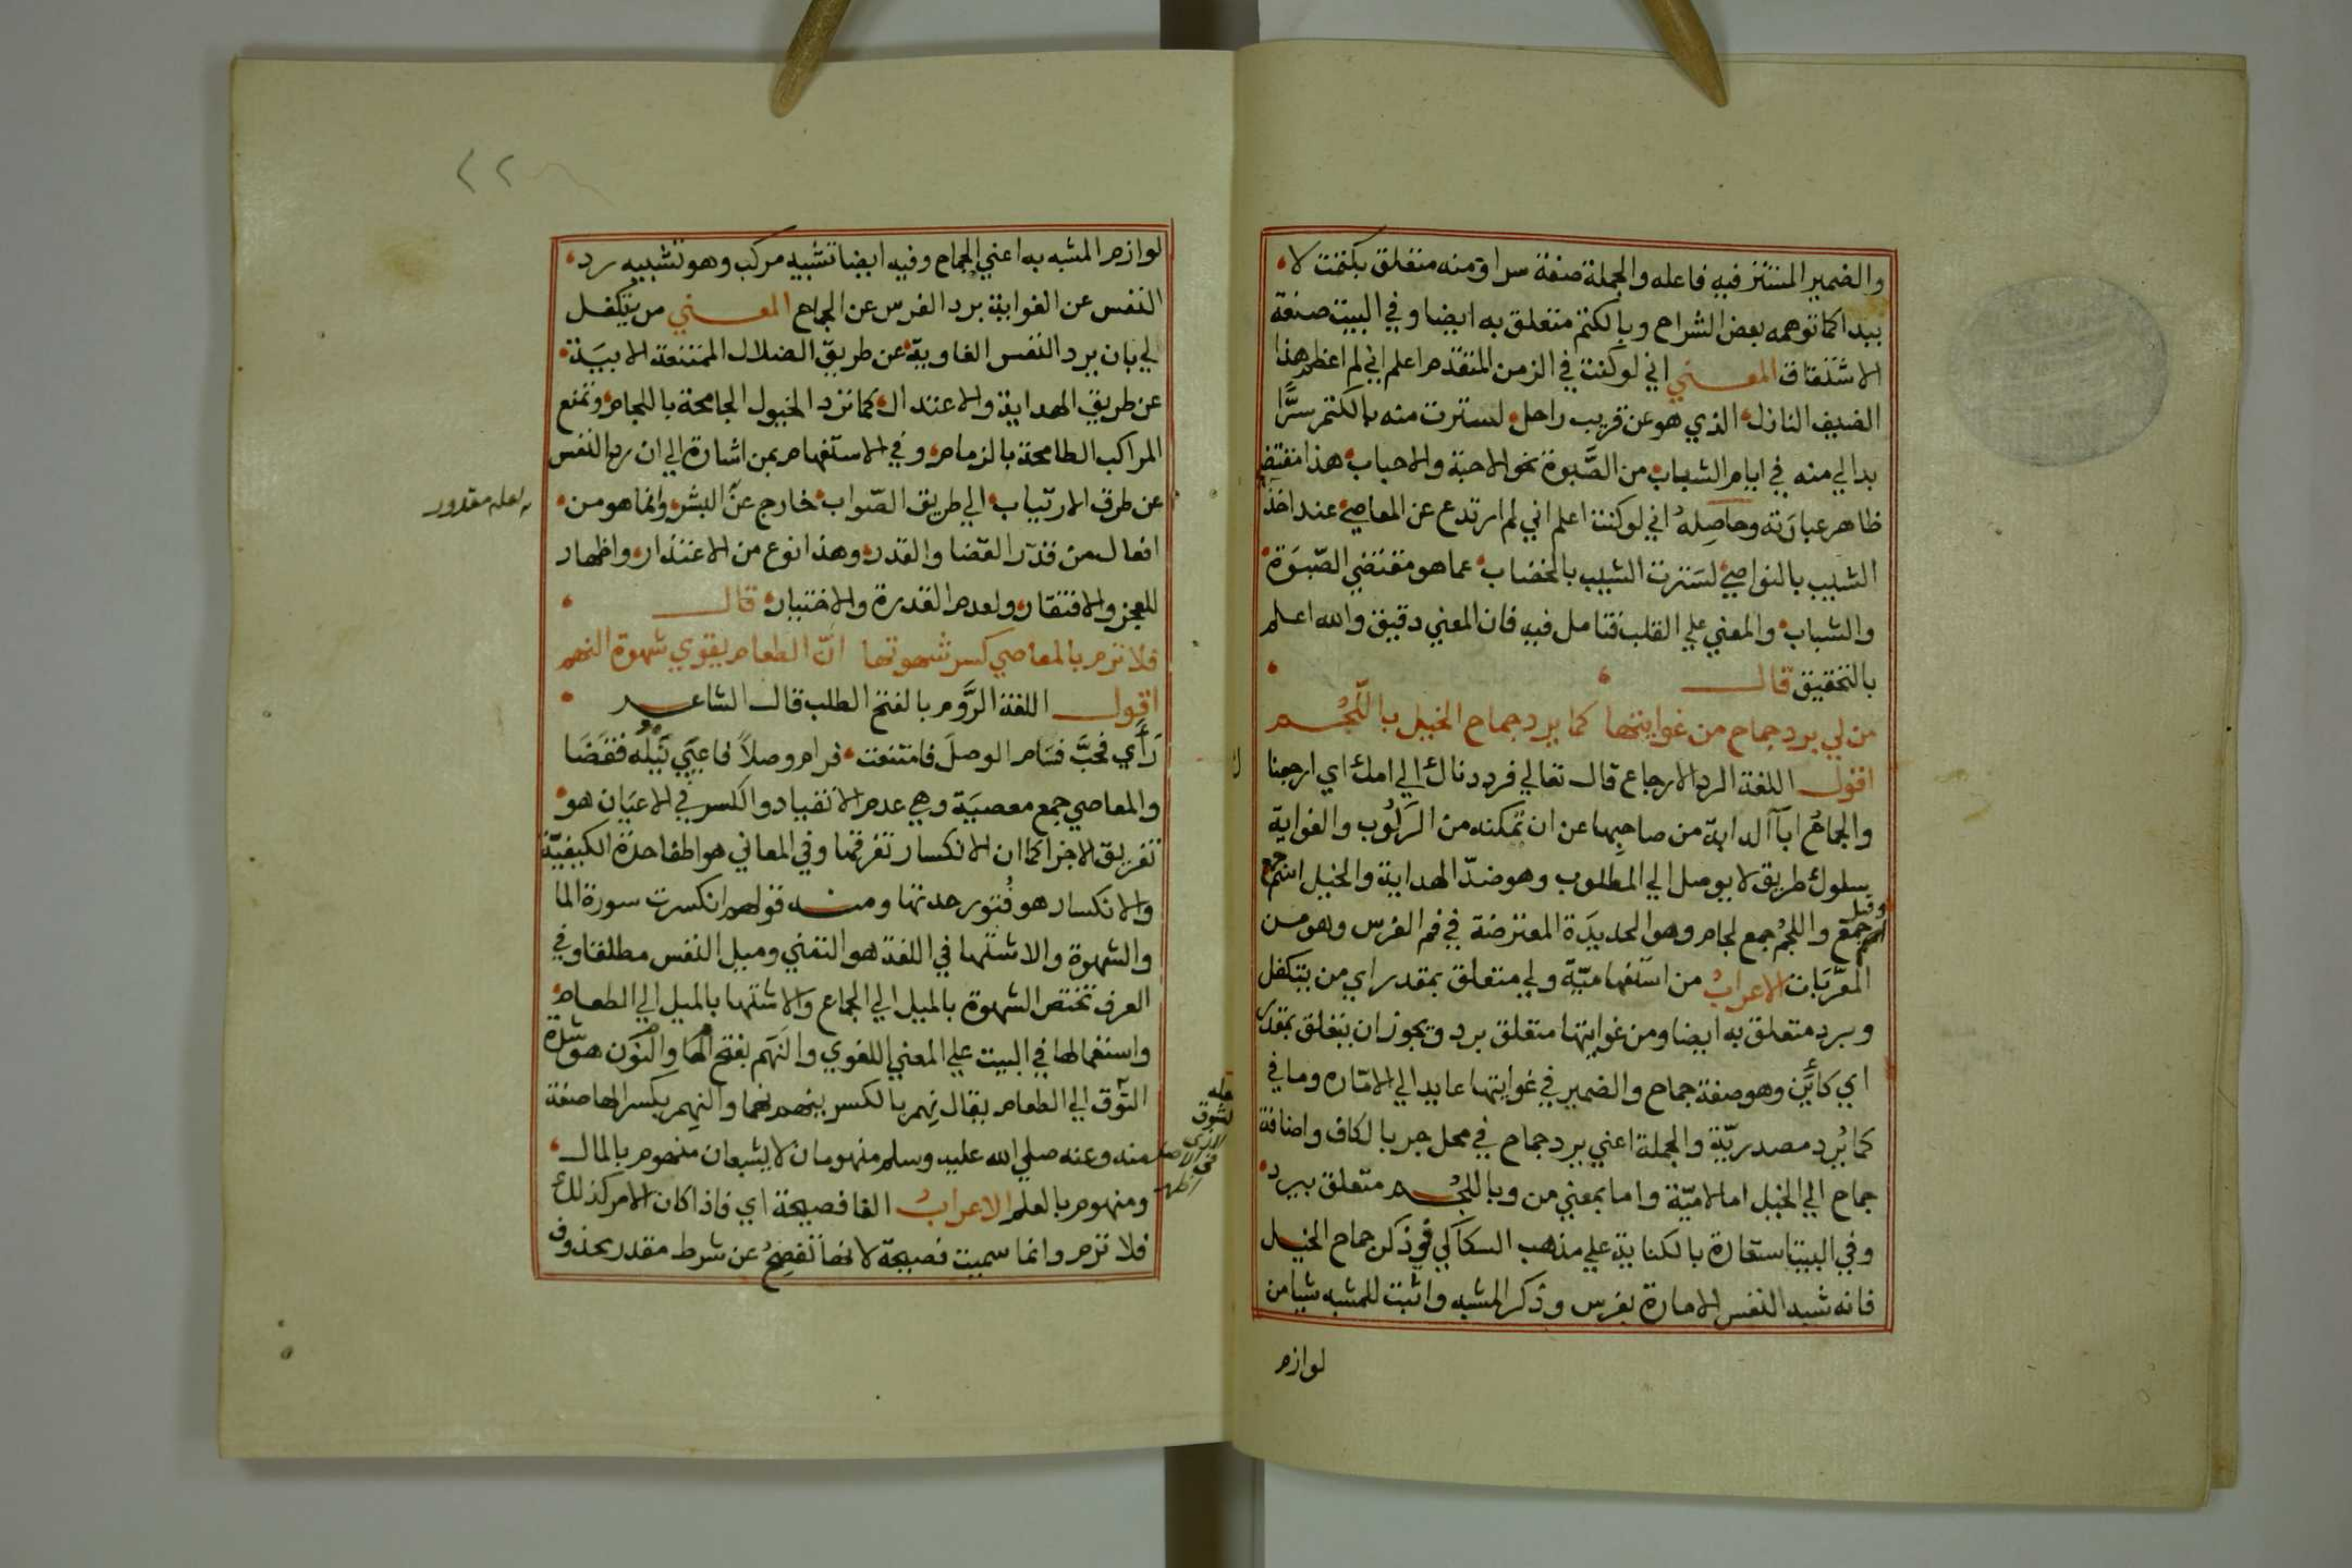 والضمير المستتر فيه فاعله والجملة صفة سرا ومنه متعلق بكتمت لا
ببدا كما توهمه بعض الشراح وبالكتم متعلق به ايضا وفي البيت صنعة
الاشتقاق المعنى اني لو كنت في الزمن المتقدم اعلم اني لم اعظم هذا
الضيف النازل الذي هو عن قريب راحل لسترت منه بالكتم سرًّا
بدا لي منه في ايام الشباب من الصَّبوة نحو الاحبة والاحباب هذا مقتضي
ظاهر عبارَته وحاصِلهُ اني لو كنت اعلم اني لم ارتدع عن المعاصي عند اخذ
الشيب بالنواصي لسَترت الشيب بالخضاب عما هو مقتضي الصّبوَة
والشباب والمعني علي القلب فتامل فيه فان المعني دقيق والله اعلم
بالتحقيق قال
من لي برد جماح من غوايتها كما يرد جماح الخيل باللُّجُم
اقول اللغة الرد الارجاع قال تعالي فرددناك الي امك اي ارجعنا
والجماحُ ابآ الدابة من صاحبِها عن ان تمكنه من الرَكُوب والغواية
سلوك طريق لا يوصل الي المطلوب وهو ضدّ الهداية والخيل اسم جمع
وقيل
جمع واللجُم جمع لجام وهو الحديدَة المعترضة في فم الفرس وهو من
المعَّربَات الاعرابُ من استفهاميّة ولي متعلق بمقدر اي من يتكفل
وبرد متعلق به ايضا ومن غوايتها متعلق برد ويجوز ان يتعلق بمقدر
اي كائَن وهو صفة جماح والضمير في غوايتها عايد الي الامّاره وما في
كما يُرد مصدريّة والجملة اعني يرد جماح في محل جر بالكاف واضافة
جماح الي الخيل اما لاميّة واما بمعني من وباللُجُم متعلق بيرد
وفي البيت استعارة بالكناية علي مذهب السكاكي في ذكر جماح الخيل
فانه شبه النفس الامارة بفرس وذكر المشبه واثبت للمشبه شيا من
لوازم
لوازم المشبه به اعني الجماح وفيه ايضا تشبيه مركب وهو تشبيه رد
النفس عن الغواية برد الفرس عن الجماح المعنى من يتكفل
لي بان يرد النفس الغاوية عن طريق الضلال الممتنعة الابيَة
عن طريق الهداية والاعتدال كما ترد الخيول الجامحة باللجام وتمنع
المراكب الطامحة بالزمام وفي الاستفهام بمن اشارة الي ان رد النفس
عن طرق الارتياب الي طريق الصّواب خارج عن البشر وانما هو من
لعله مقدور
افعال من قدّر القضا والقدر وهذا نوع من الاعتذار واظهار
للعجز والافتقار ولعدم القدرة والاختيار قال
فلا ترم بالمعاصي كسر شهوتها انّ الطعام يقوي شهوة النهم
اقول اللغة الرَّوم بالفتح الطلب قال الشاعر
رَأي فحَبَّ فسَام الوصلَ فامتنعت فرام وصلاً فاعيَي نَيلُه فقضَا
والمعاصي جمع معصيَة وهي عدم الانقياد والكسر في الاعيَان هو
تفريق الاجزا كما ان الانكسار تفرقها وفي المعاني هو اطفا حدَة الكيفيّة
والانكسار هو فُتور حدتها ومنه قولهم انكسرت سورة الما
والشهوة والاشتها في اللغة هو التمني وميل النفس مطلقا وفي
العرف تختص الشهوة بالميل الي الجماع والاشتها بالميل الي الطعام
واستعمالها في البيت علي المعني اللغوي والنَهَم بفتح الها والنون هو شدة
التَوق الي الطعام يقال نِهم بالكسر ينهم نهما والنِهم بكسر الها صفة
منه وعنه صلي الله عليه وسلم منهومان لا يشبعان منهوم بالمال
ومنهوم بالعلم الاعرابُ الفا فصيحة اي فاذا كان الامر كذلك
فلا ترم وانما سميت فصيحة لانها تفصِحُ عن شرط مقدر محذوف